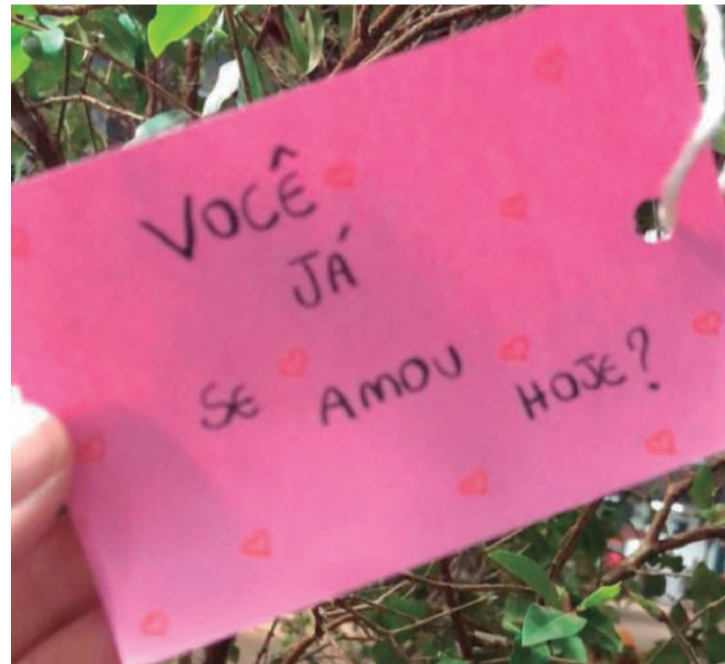 VOCÊ
JÁ
SE AMOU HOJE?